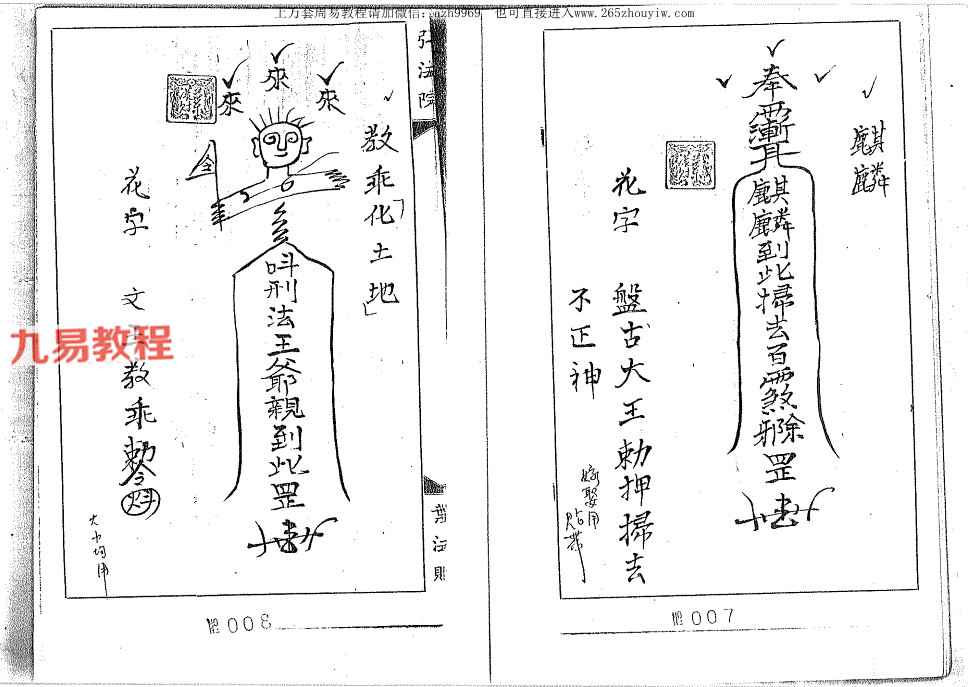 上万套周易教程请加微信：nzh9969，也可直接进入www.265zhouyiw.com
麒麟
奉
麒麟到此掃去百
罡
花字
盤古大王勅押掃去
不正神
嫁娶用
貼帶
007
弘法院
教乖化土地
來
來
來
令
叫刑法王爺親到此罡
花字
文王教乖勅令
大小均用
008
九易教程